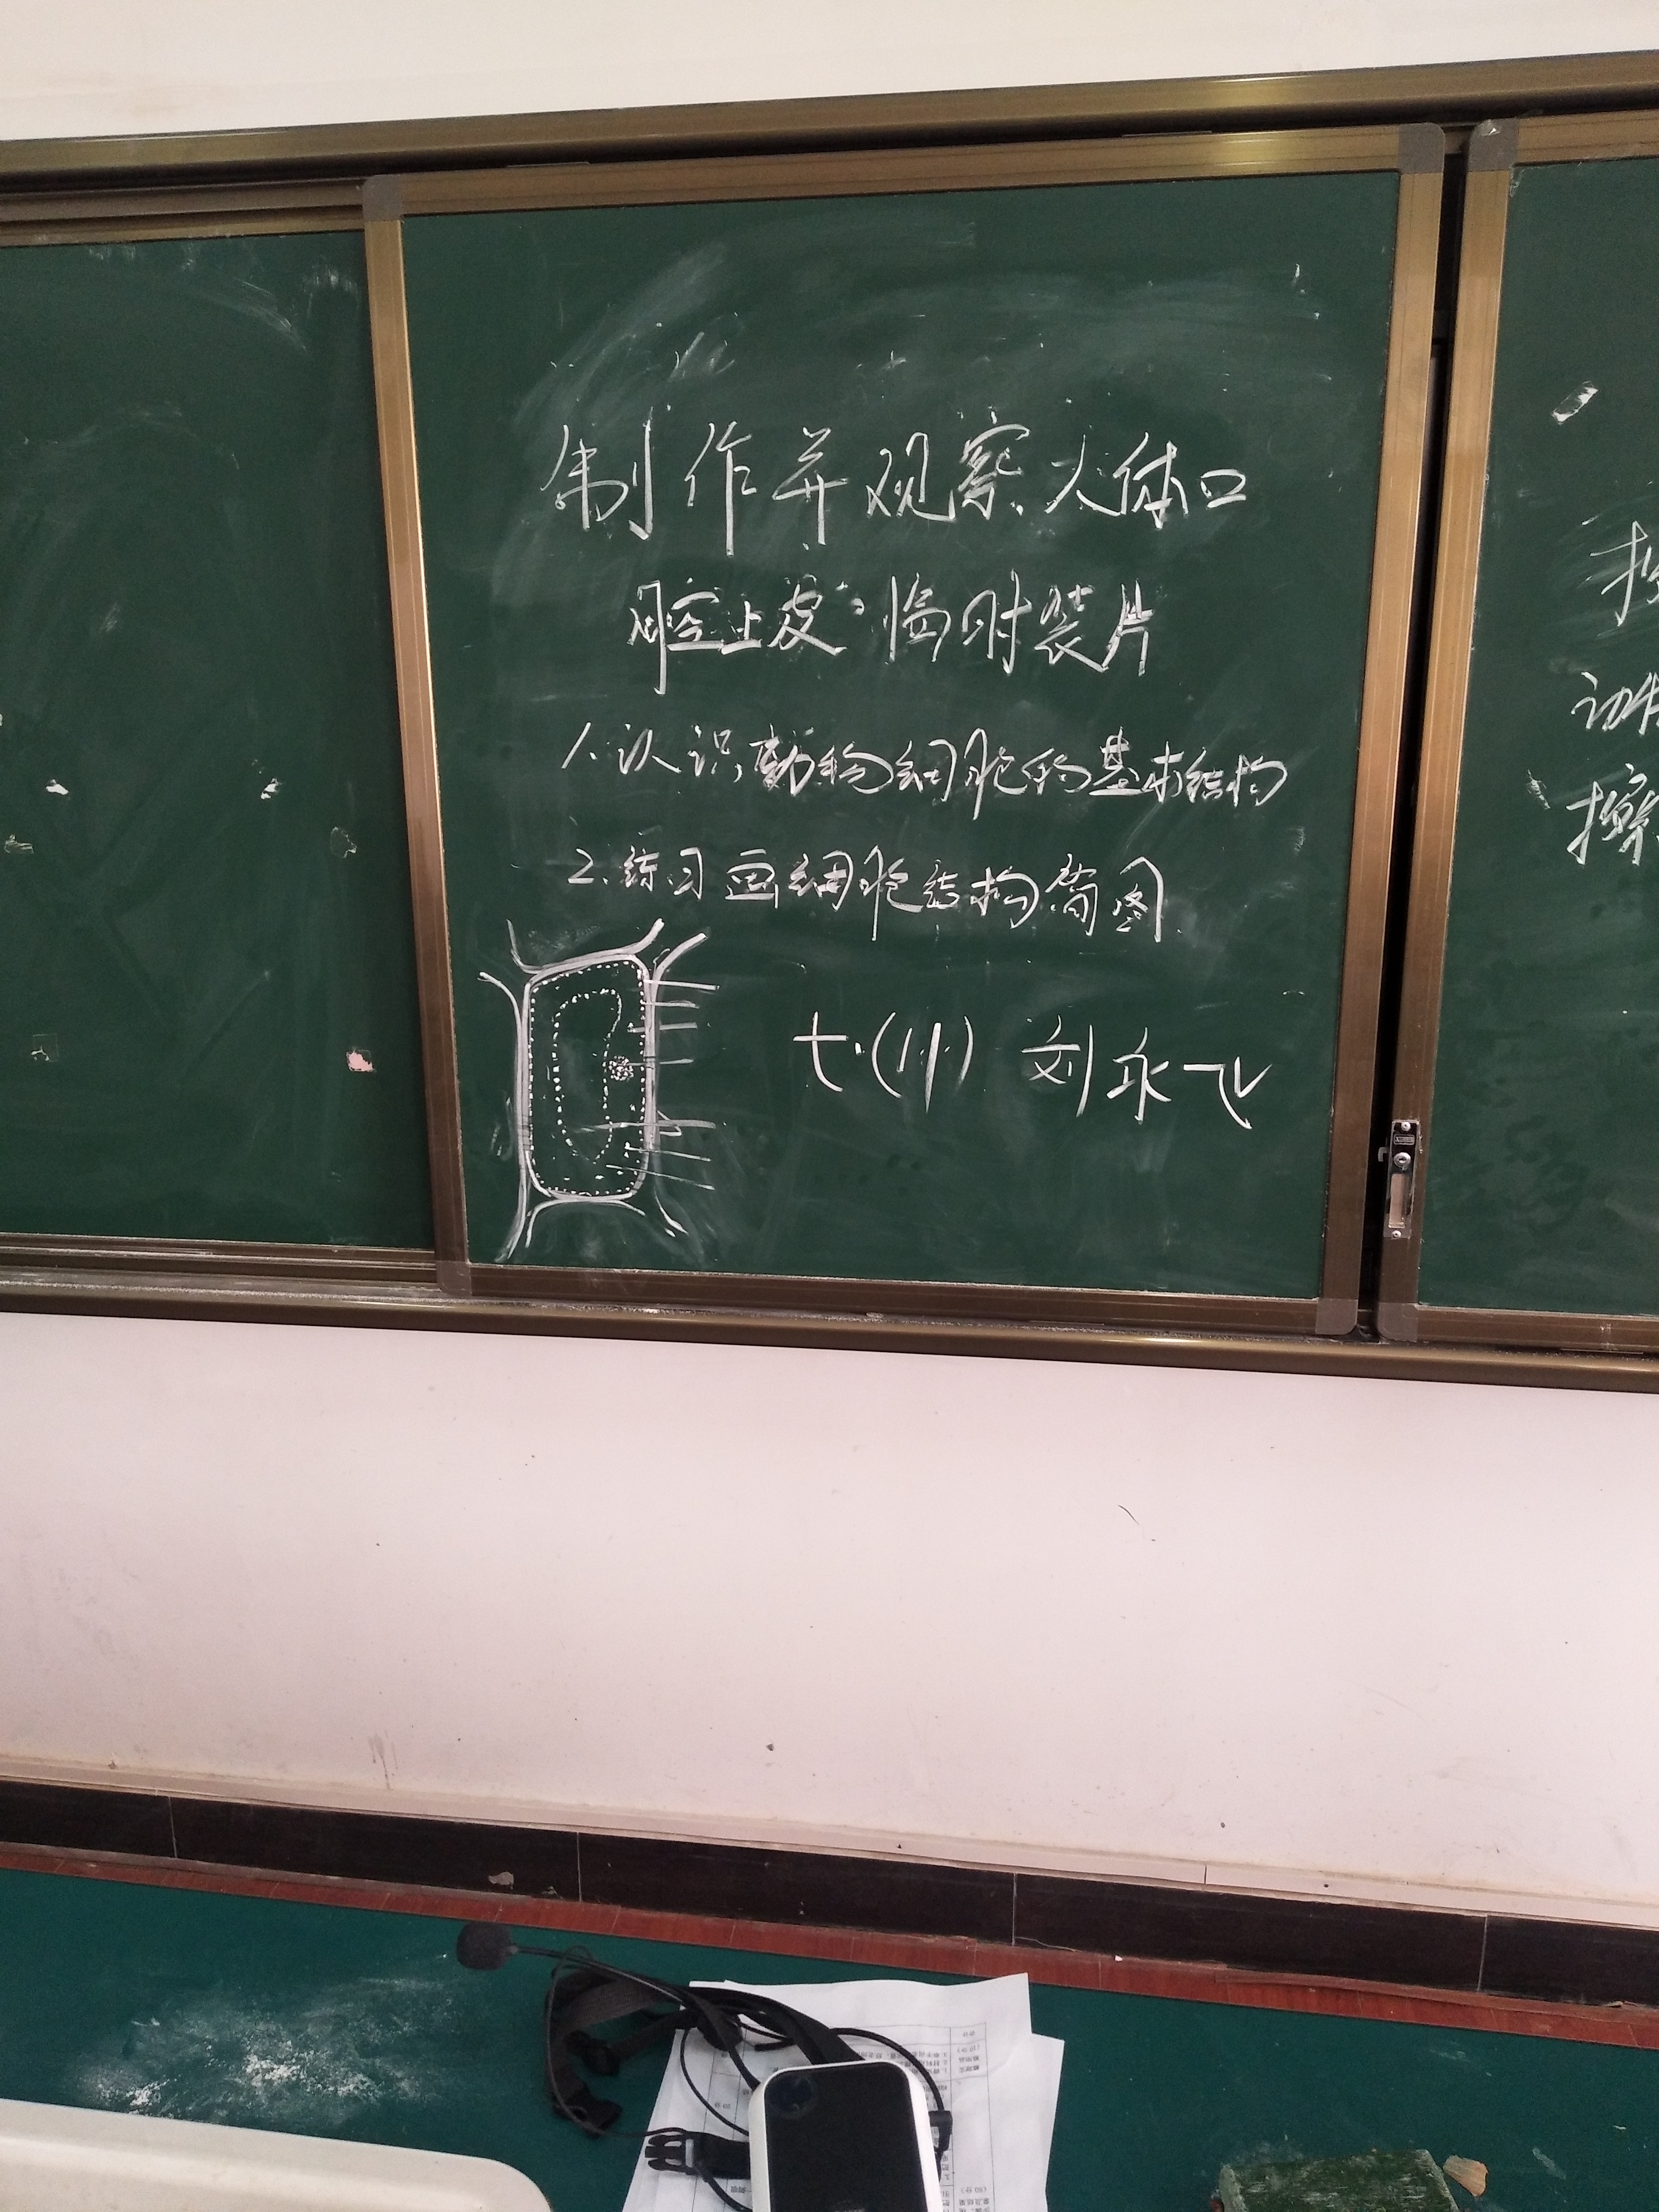 制作并观察人体口
腔上皮临时装片
1.认识动物细胞的基本结构
2.练习画细胞结构简图
七.(11) 刘永飞
擦